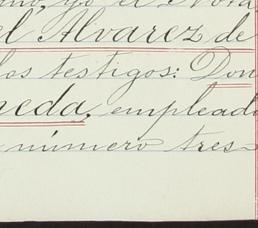 no, yo el Nota
el Alvarez de
los testigos: Don
neda, emplead
número tres